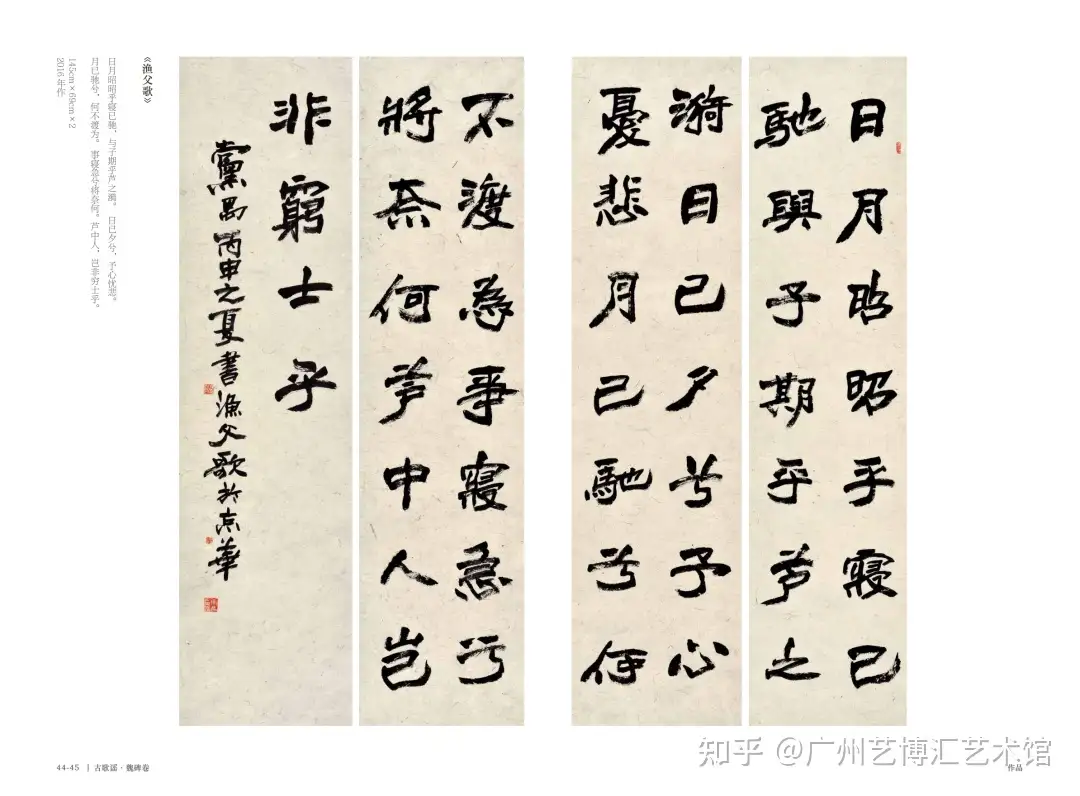 日月昭昭乎寢已
馳與子期乎芦之
漪日已夕兮予心
憂悲月已馳兮何
不渡為事寢急兮
將奈何芦中人豈
非窮士乎
黨禺丙申之夏書漁父歌於京華
《渔父歌》
日月昭昭乎寝已驰，与子期乎芦之漪。日已夕兮，予心忧悲。
月已驰兮，何不渡为。事寝急兮将奈何。芦中人，岂非穷士乎。
145cm×69cm×2
2016年作
44-45 | 古歌谣·魏碑卷
作品
知乎 @广州艺博汇艺术馆